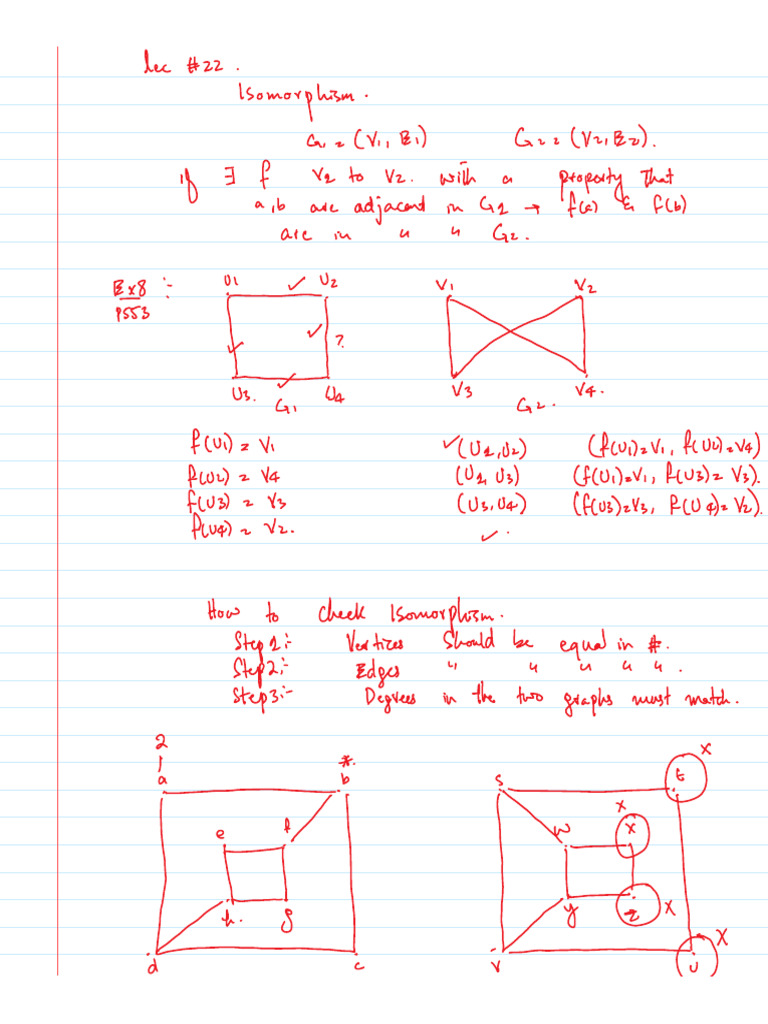 Lec #22.
Isomorphism.
G1 = (V1, E1) G2 = (V2, E2).
if ∃ f V1 to V2. with a property that
a,b are adjacent in G1 → f(a) & f(b)
are in " " G2.
Ex8 :-
P553
U1 U2 V1 V2
?
U3. U4 V3 V4.
G1 G2.
f(U1) = V1 ✓(U1,U2) (f(U1)=V1, f(U2)=V4)
f(U2) = V4 (U1, U3) (f(U1)=V1, f(U3)=V3).
f(U3) = V3 (U3, U4) (f(U3)=V3, f(U4)=V2).
f(U4) = V2. ✓.
How to check Isomorphism.
Step1:- Vertices should be equal in #.
Step2:- Edges " " " " ".
Step3:- Degrees in the two graphs must match.
2 *. x
a b s t
x
e f w x
h. g y z x
x
d c v u